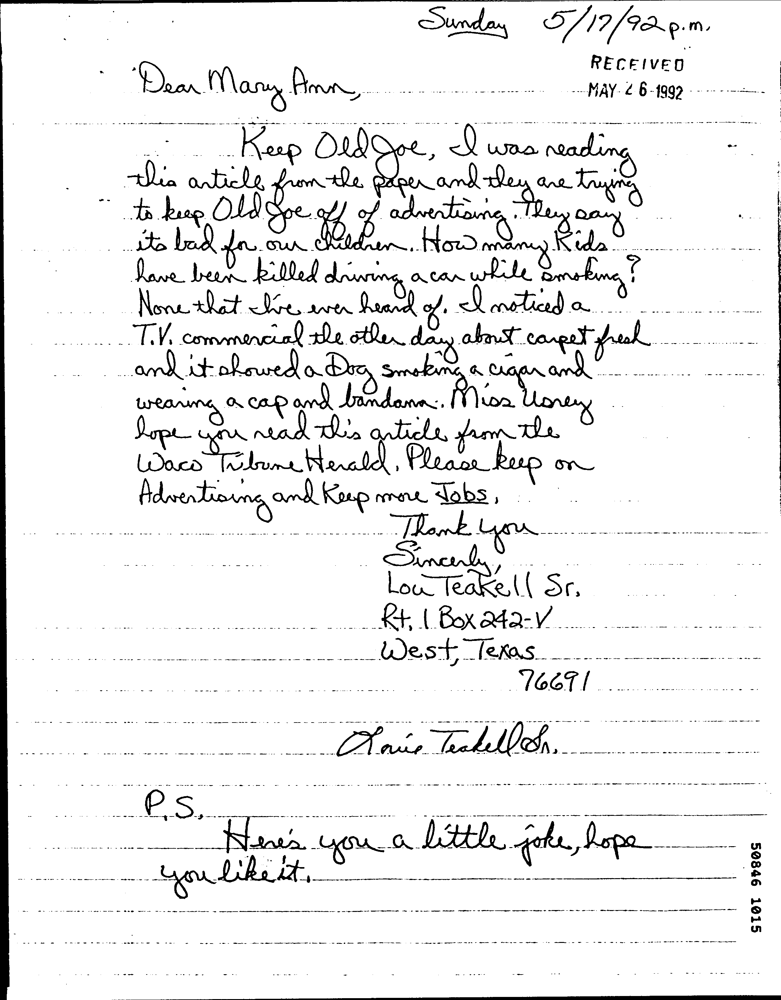 Sunday 5/17/92 p.m.
RECEIVED
MAY 26 1992
Dear Mary Ann,
Keep Old Joe, I was reading
this article from the paper and they are trying
to keep Old Joe off of advertising. They say
its bad for our children. How many Kids
have been killed driving a car while smoking?
None that I've ever heard of. I noticed a
T.V. commercial the other day about carpet fresh
and it showed a Dog smoking a cigar and
wearing a cap and bandana. Miss Usrey
hope you read this article from the
Waco Tribune Herald. Please keep on
Advertising and Keep more Jobs.
Thank you
Sincerly,
Lou Teakell Sr.
Rt. 1 Box 242-V
West, Texas
76691
Louie Teakell Sr.
P.S.
Here's you a little joke, hope
you like it.
50846 1015